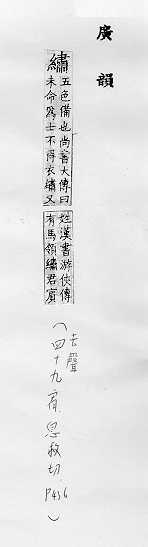 廣韻
繡五色備也尚書大傳曰
未命爲士不得衣繡又
姓漢書游俠傳
有馬領繡君賓
(去聲
四十九宥.息救切. P436)